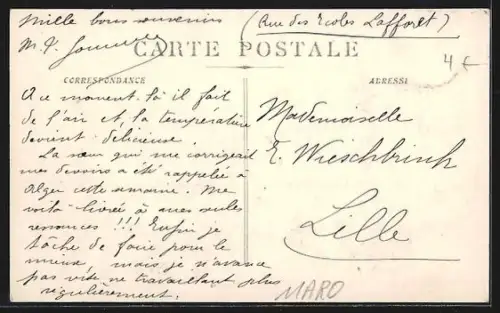 Mille bons souvenirs
(Rue des Ecoles Lafforet)
M. V.
CARTE POSTALE
4 €
CORRESPONDANCE
ADRESSE
A ce moment-là il fait
de l'air et, la température
devient délicieuse.
La sœur qui me corrigeait
mes devoirs a été rappelée à
Alger cette semaine. Me
voilà livrée à mes seules
ressources !!! Enfin je
tâche de faire pour le
mieux, mais je n'avance
pas vite ne travaillant plus
régulièrement.
Mademoiselle
E. Wieschbrinck
Lille
MARO